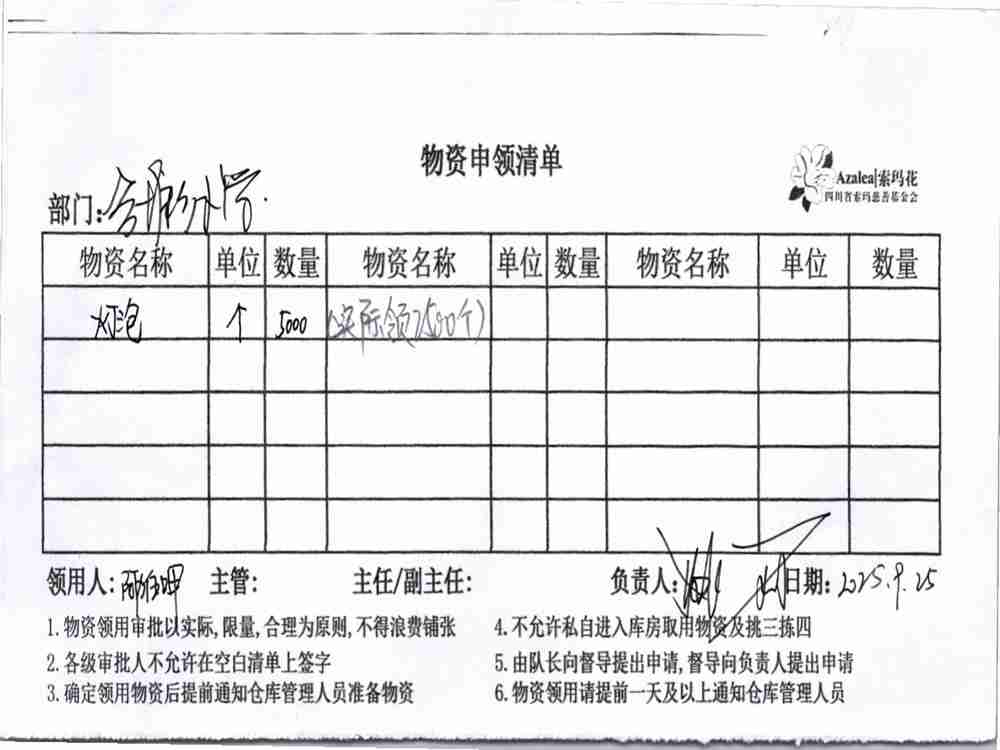 物资申领清单
Azalea|索玛花
四川省索玛慈善基金会
部门:
物资名称 单位 数量 物资名称 单位 数量 物资名称 单位 数量
灯泡 个 5000 (实际领2500个)
领用人: 主管: 主任/副主任: 负责人: 日期: 2025.9.25
1.物资领用审批以实际,限量,合理为原则,不得浪费铺张
4.不允许私自进入库房取用物资及挑三拣四
2.各级审批人不允许在空白清单上签字
5.由队长向督导提出申请,督导向负责人提出申请
3.确定领用物资后提前通知仓库管理人员准备物资
6.物资领用请提前一天及以上通知仓库管理人员